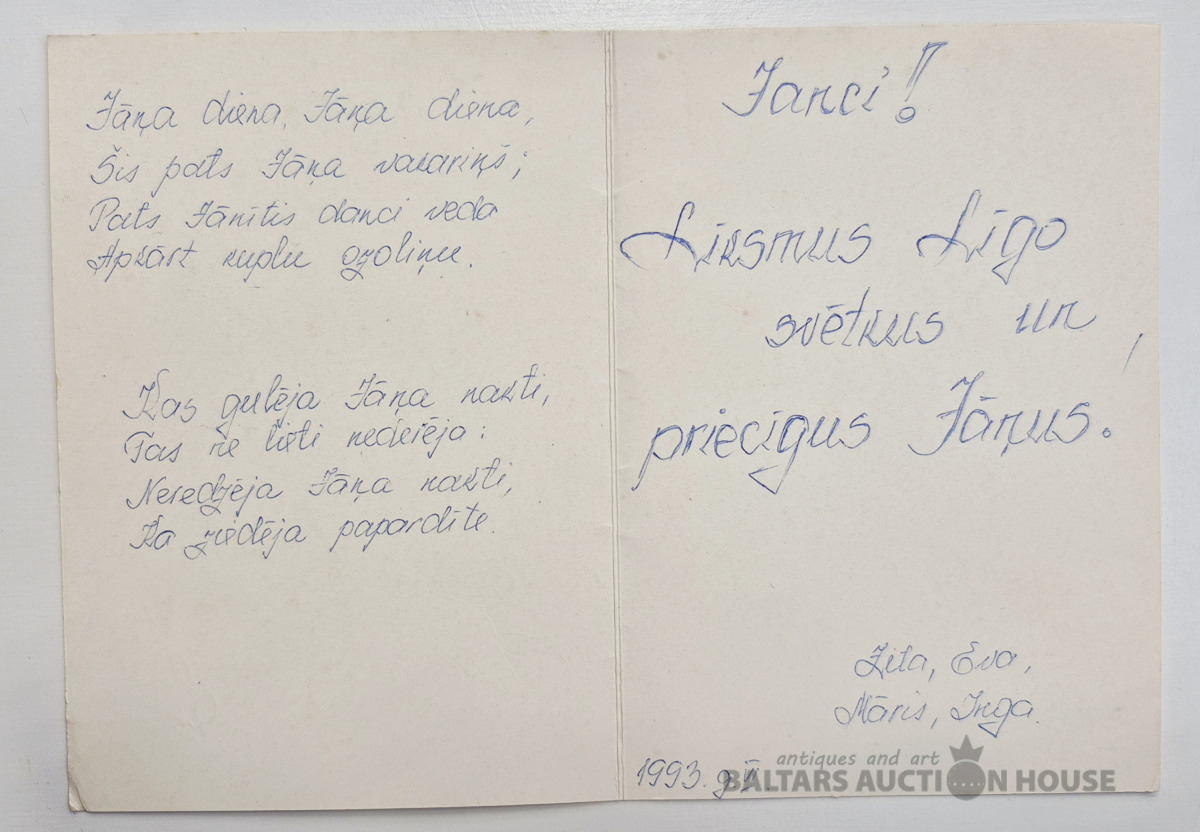 Jāņa diena, Jāņa diena,
Šis pats Jāņa vakariņš;
Pats Jānītis danci veda
Apkārt kuplu ozoliņu.
Kas gulēja Jāņa nakti,
Tas ne lieti nederēja:
Neredzēja Jāņa nakti,
Ka ziedēja papardīte.
Janci!
Līksmus Līgo
svētkus un
priecīgus Jāņus.
Zita, Eva,
Māris, Inga.
1993. g.
antiques and art
BALTARS AUCTION HOUSE